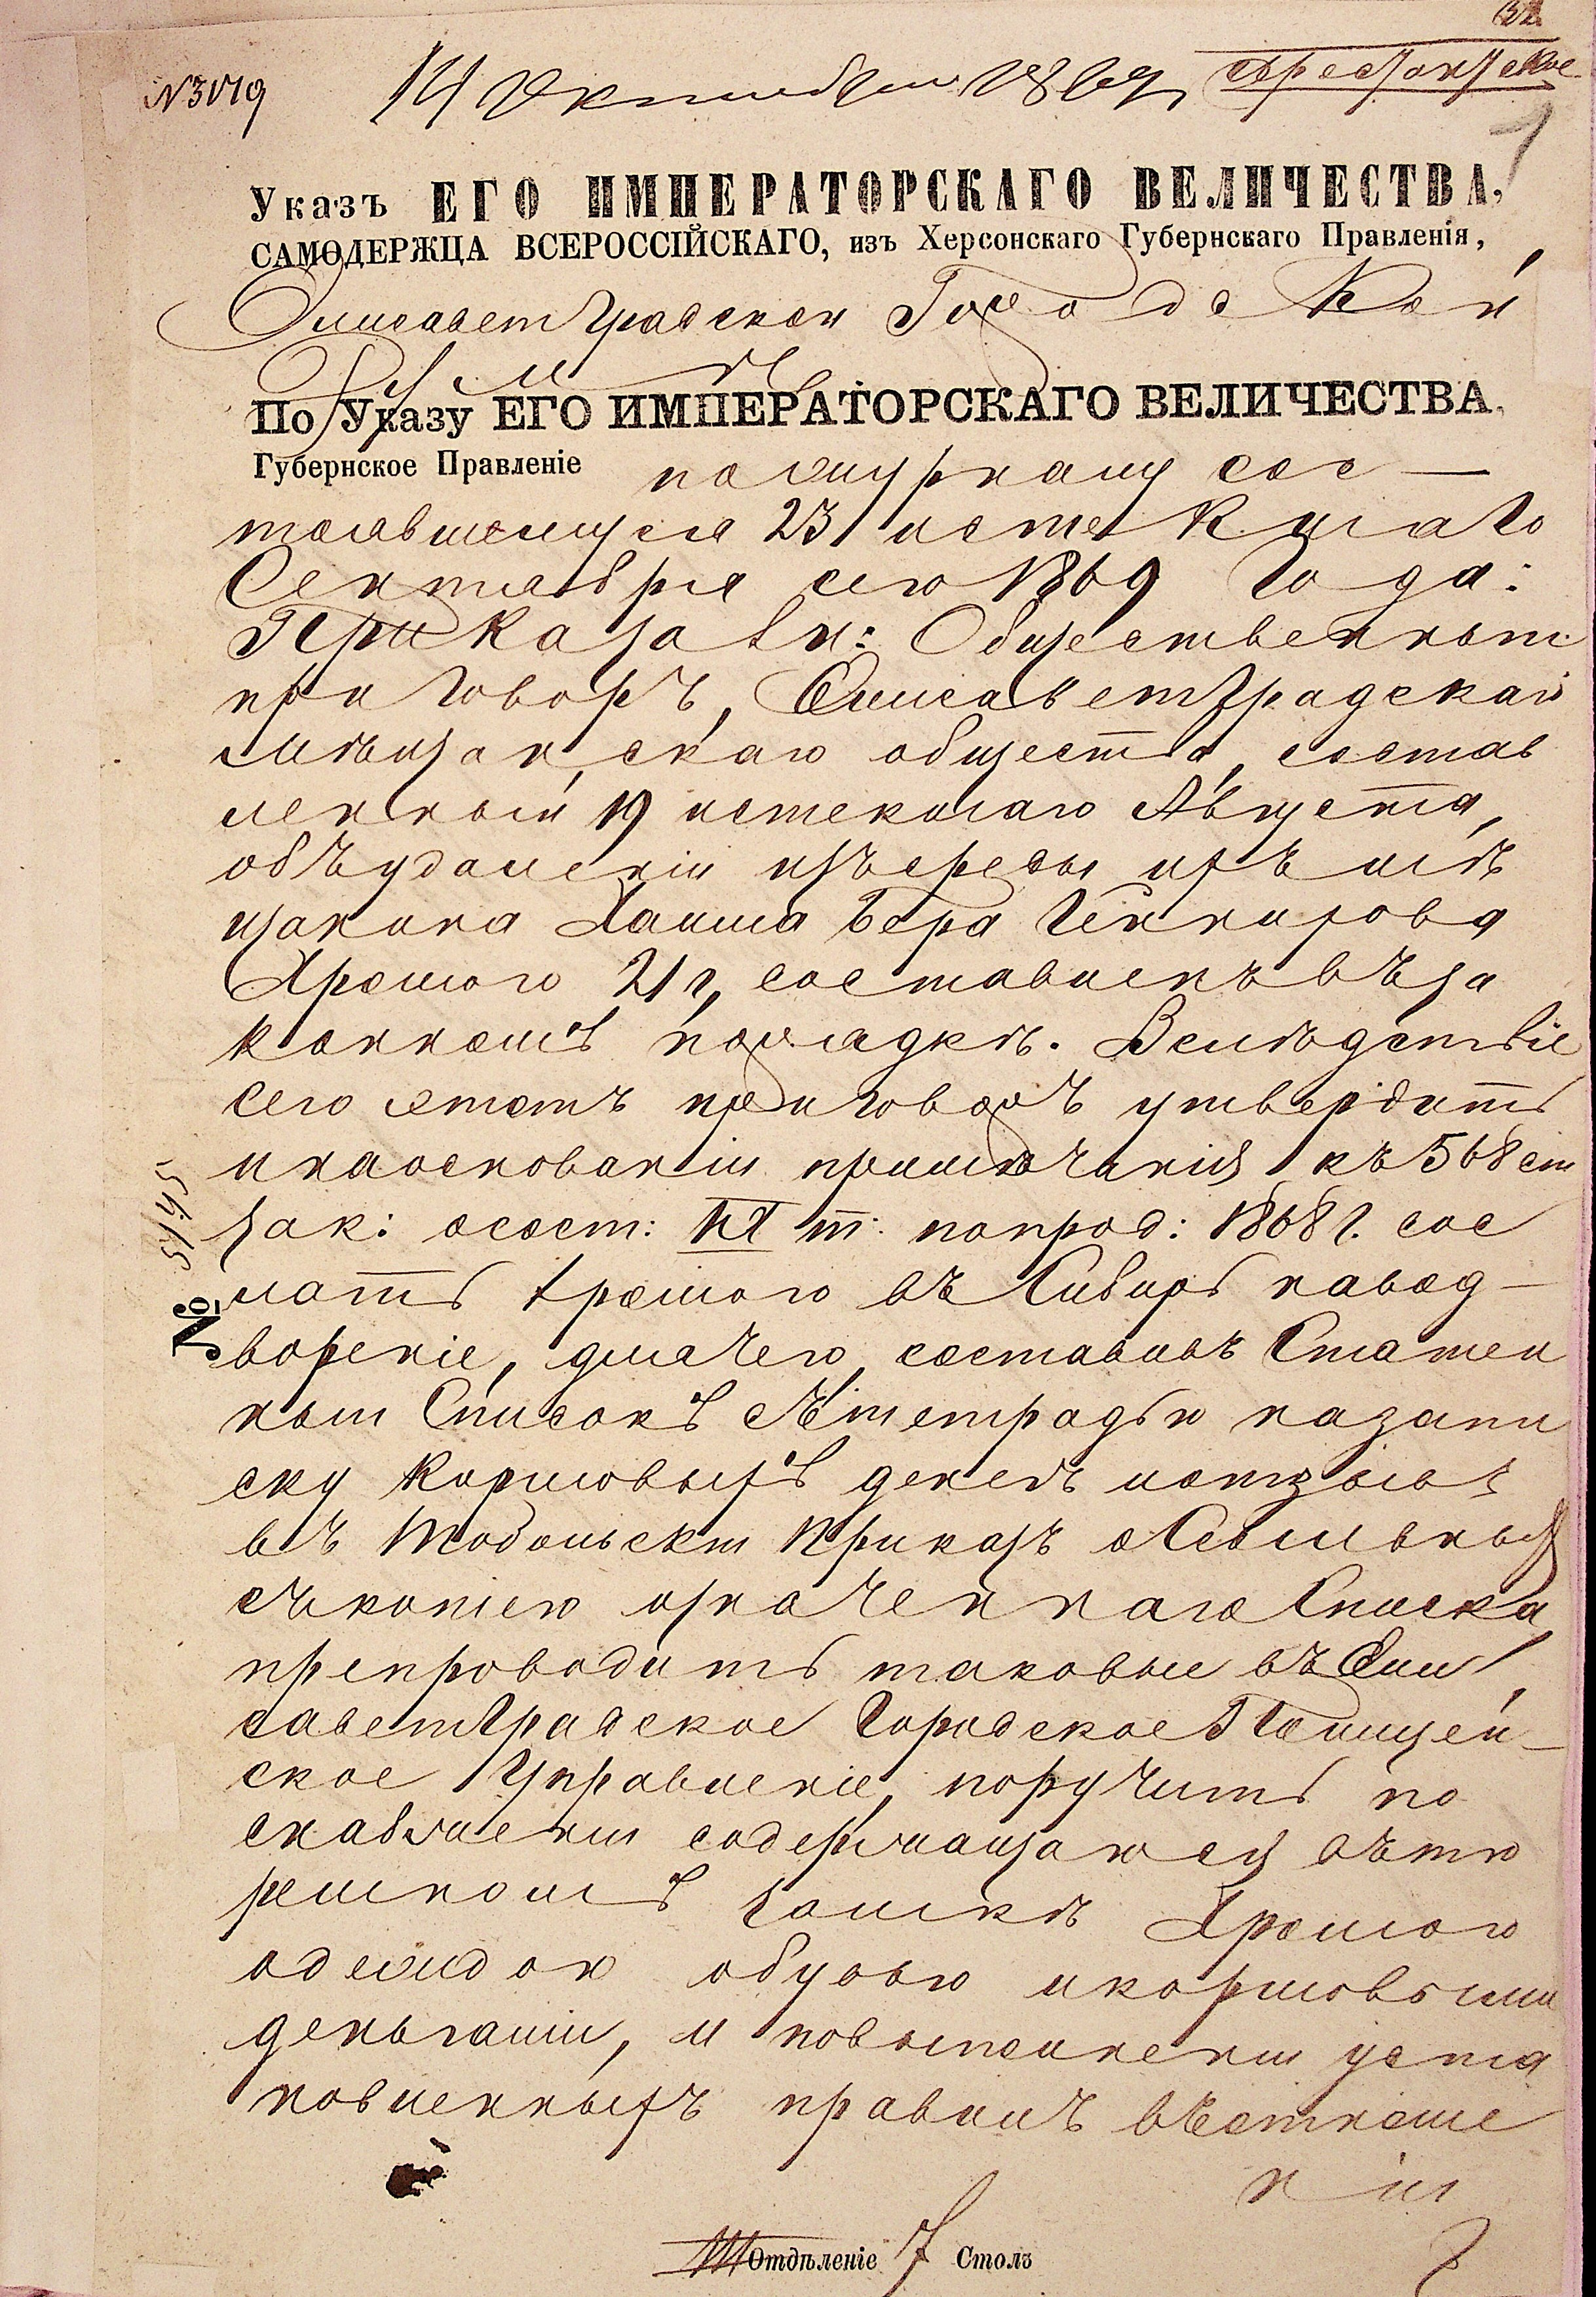 № 3179
14 Октября 1869
Арестантское
1
Указъ ЕГО ИМПЕРАТОРСКАГО ВЕЛИЧЕСТВА,
САМОДЕРЖЦА ВСЕРОССІЙСКАГО, изъ Херсонскаго Губернскаго Правленія,
Елисаветградской Городской
Думѣ
По Указу ЕГО ИМПЕРАТОРСКАГО ВЕЛИЧЕСТВА,
Губернское Правленіе по журналу сос-
тоявшемуся 23 истекшаго
Сентября сего 1869 Года:
Приказали: Общественный
приговоръ, Елисаветградскаго
мѣщанскаго общества, состав
ленный 19 истекшаго Августа,
объ удаленіи изъ среды ихъ мѣ
щанина Хаима Бера
Хромого 21 г, составленъ въ за
конномъ порядкѣ. Вслѣдствіе
сего этотъ приговоръ утвердить
и на основаніи примѣчанія къ 568 ст
Зак: о сост: IX т: по прод: 1868 г. сос
лать Хромого въ Сибирь на вод-
вореніе, для чего, составивъ Статей
ный Списокъ съ тетрадью на запи
ску кормовыхъ денегъ и отзывъ
въ Тобольскій Приказъ о Ссыльныхъ
съ копіею означеннаго Списка
препроводить таковые въ Ели
саветградское Городское Полицей-
ское Управленіе, поручить по
снабженіи содержащагося въ тю
ремномъ замкѣ Хромого
одеждою обувью и кормовыми
деньгами, и по выполненіи уста
новленныхъ правилъ въ отноше
ніи
№ 5745
III Отдѣленіе 7 Столъ